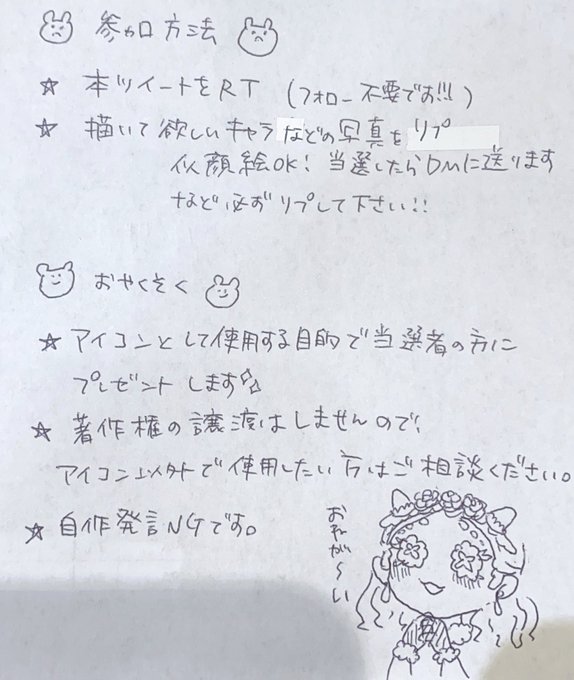 参加方法
☆ 本ツイートをRT (フォロー不要です!!!)
☆ 描いて欲しいキャラなどの写真をリプ
似顔絵OK! 当選したらDMに送ります
など必ずリプして下さい!!
おやくそく
☆ アイコンとして使用する目的で当選者の方に
プレゼントします
☆ 著作権の譲渡はしませんので、
アイコン以外で使用したい方はご相談ください。
☆ 自作発言NGです。
おねが〜い